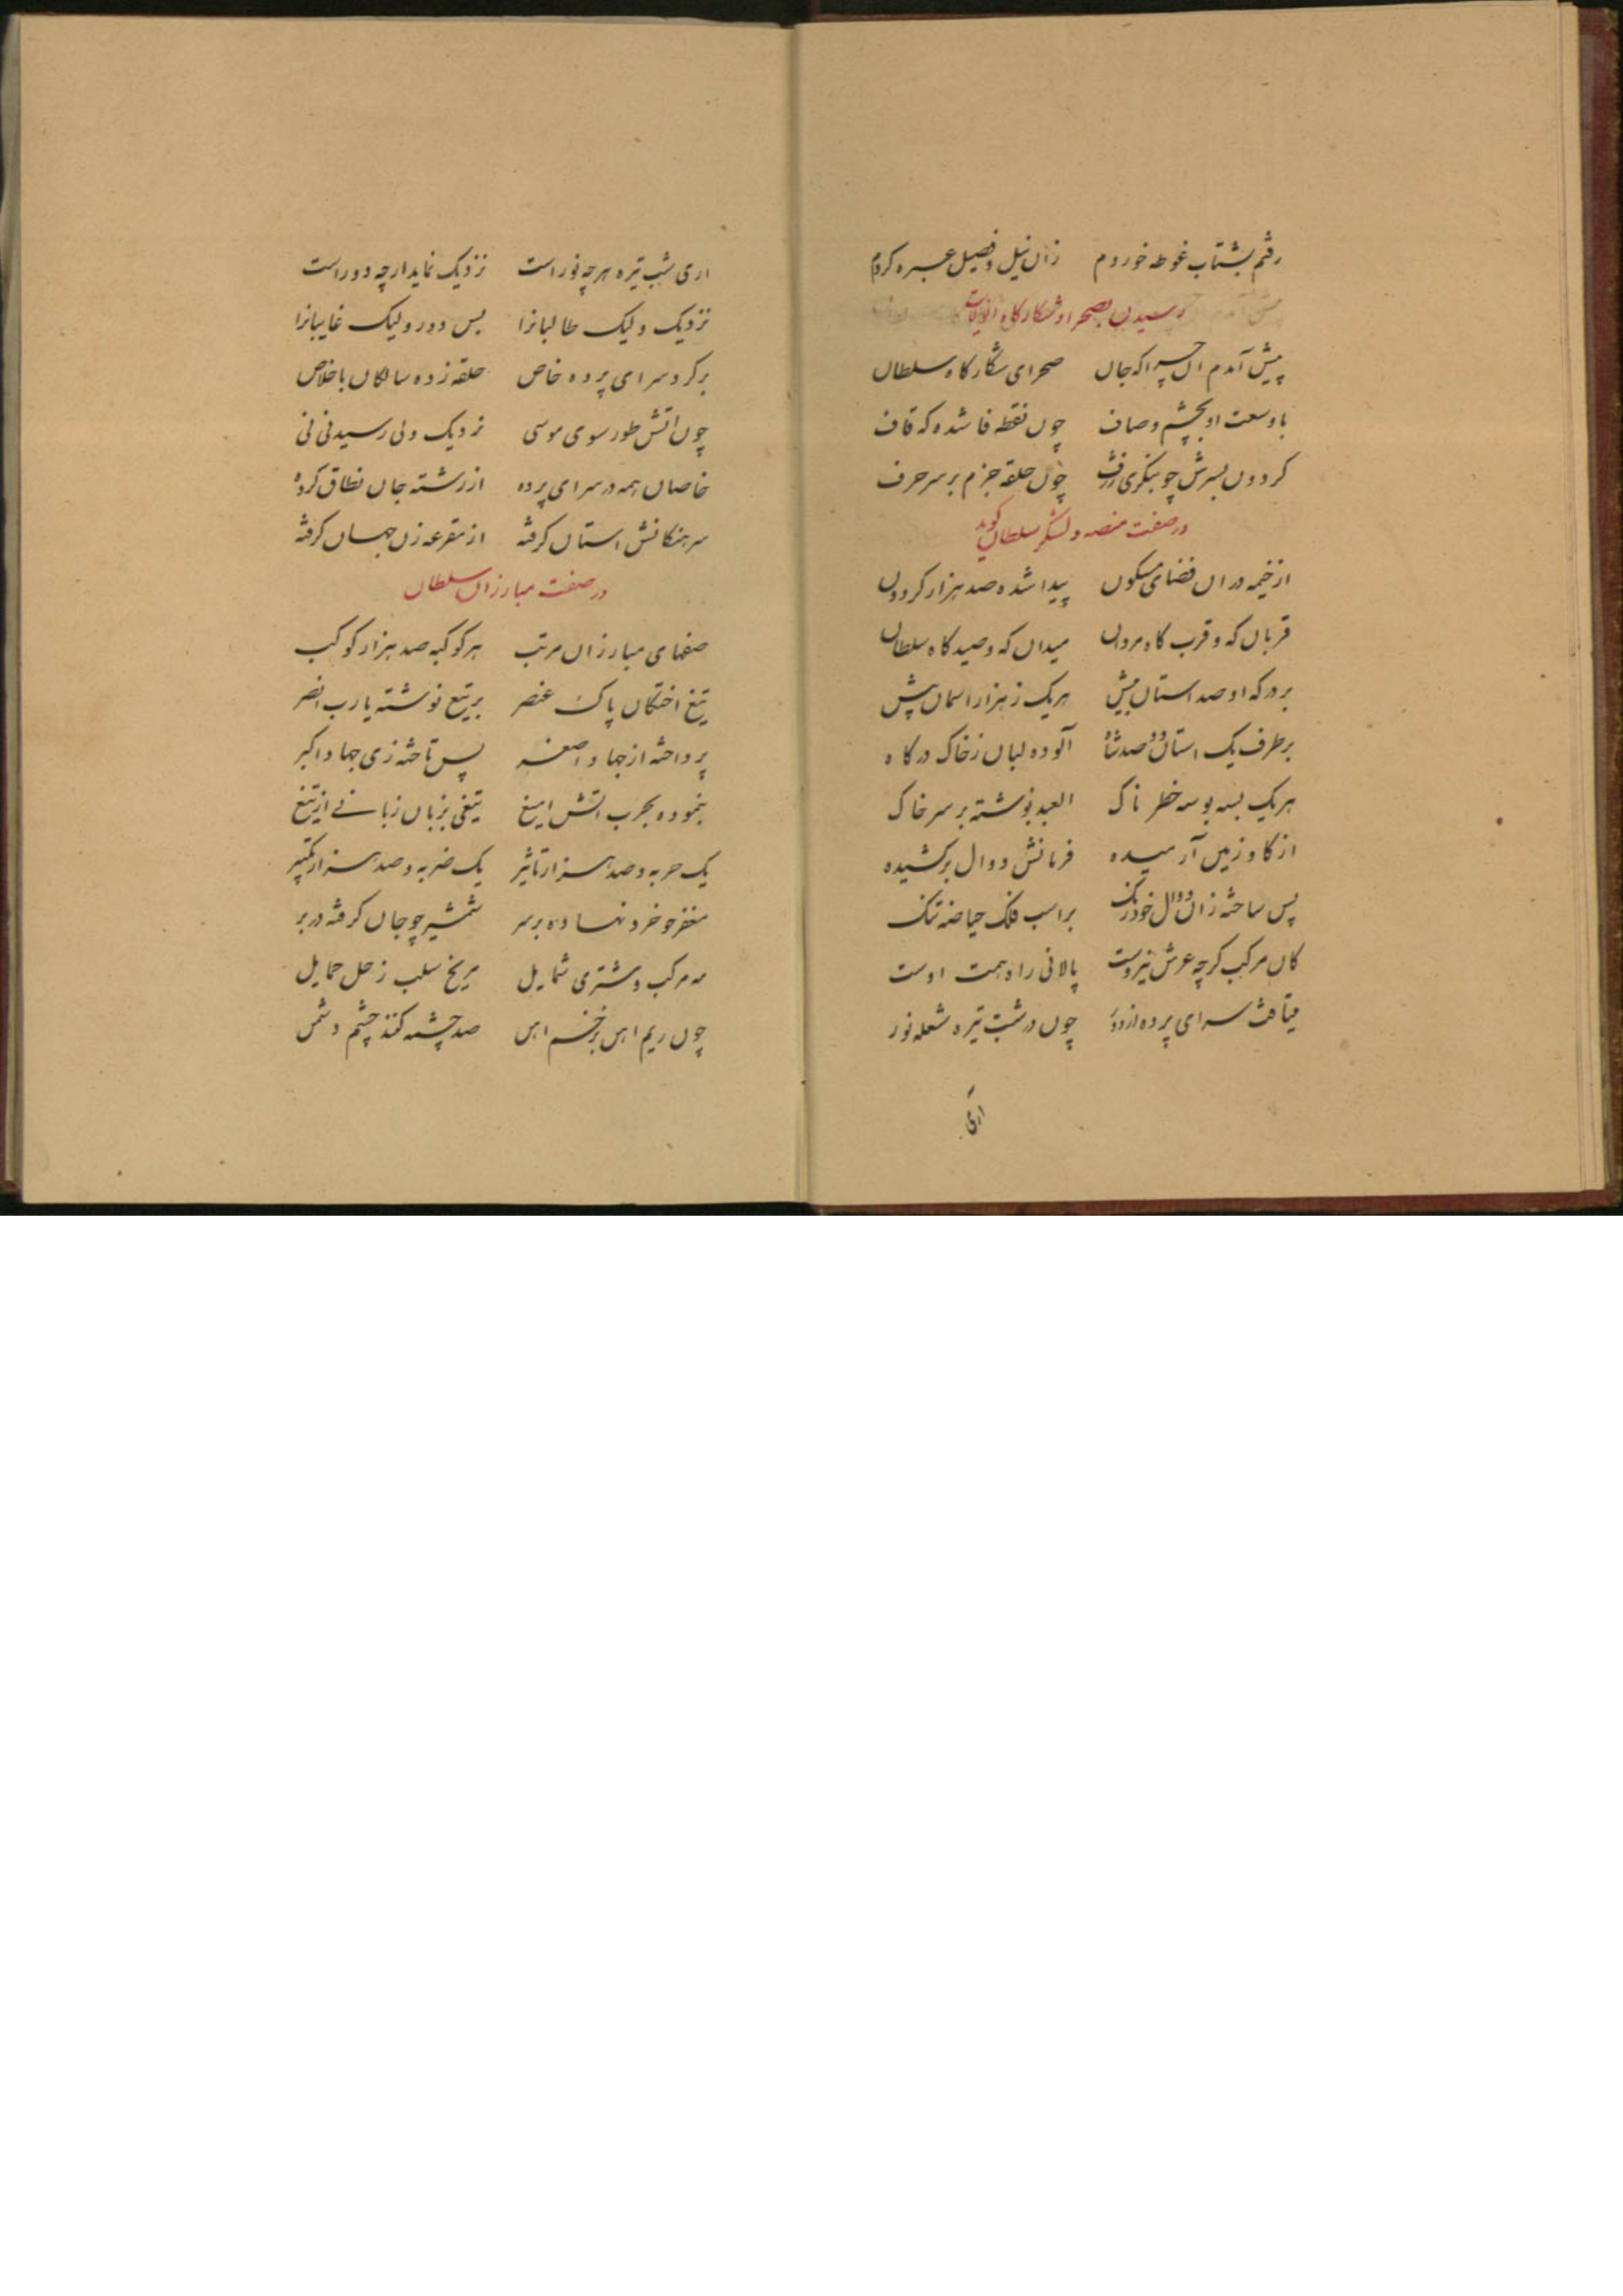 رفتم بشتاب غوطه خوردم زان نیل و فصیل عبره کردم
رسیدن بصحرا و شکارگاه
پیش آمدم آن چراگه جان صحرای شکارگاه سلطان
با وسعت او بچشم وصاف چون نقطه فا شده که قاف
کردون بسرش چو بنکری ژرف چون حلقه جزم بر سر حرف
در صفت منصه و لشکر سلطان گوید
از خیمه در ان فضای مسکون پیدا شده صد هزار کردون
قربان که و قرب کاه مردان میدان که و صیدکاه سلطان
بر درکه او صد استان بیش هر یک ز هزار اسمان پیش
بر طرف یک استان دو صد شاه آلوده لبان ز خاک درکاه
هر یک بسه بوسه خطرناک العبد نوشته بر سر خاک
از کاو زمین آرمیده فرمانش دوال برکشیده
پس ساخته زان دوال خودرنک بر اسب فلک حیاصه تنک
کان مرکب کرچه عرش نیروست پالانی راه همت اوست
میتافت سرای پرده از دور چون در شب تیره شعله نور
اری
اری شب تیره هر چه نور است نزدیک نماید ار چه دور است
نزدیک ولیک طالبانرا بس دور ولیک غایبانرا
بر کرد سرای پرده خاص حلقه زده سالکان باخلاص
چون اتش طور سوی موسی نزدیک ولی رسیدنی نی
خاصان همه در سرای پرده از رشته جان نطاق کرده
سرهنکانش استان کرفته از مقرعه زن جهان کرفته
در صفت مبارزان سلطان
صفهای مبارزان مرتب هر کوکبه صد هزار کوکب
تیغ اختکان پاک عنصر بر تیغ نوشته یا رب انصر
پرداخته از جهاد اصغر پس تاخته زی جهاد اکبر
بنموده بحرب اتش امیغ تیغی بزبان زبانی از تیغ
یک حربه و صد هزار تاثیر یک ضربه و صد هزار تکبیر
مغفر چو خرد نهاده بر سر شمشیر چو جان کرفته در بر
مه مرکب و مشتری شمایل مریخ سلب زحل حمایل
چون ریم اهن بزخم اهن صد چشمه کنند چشم دشمن